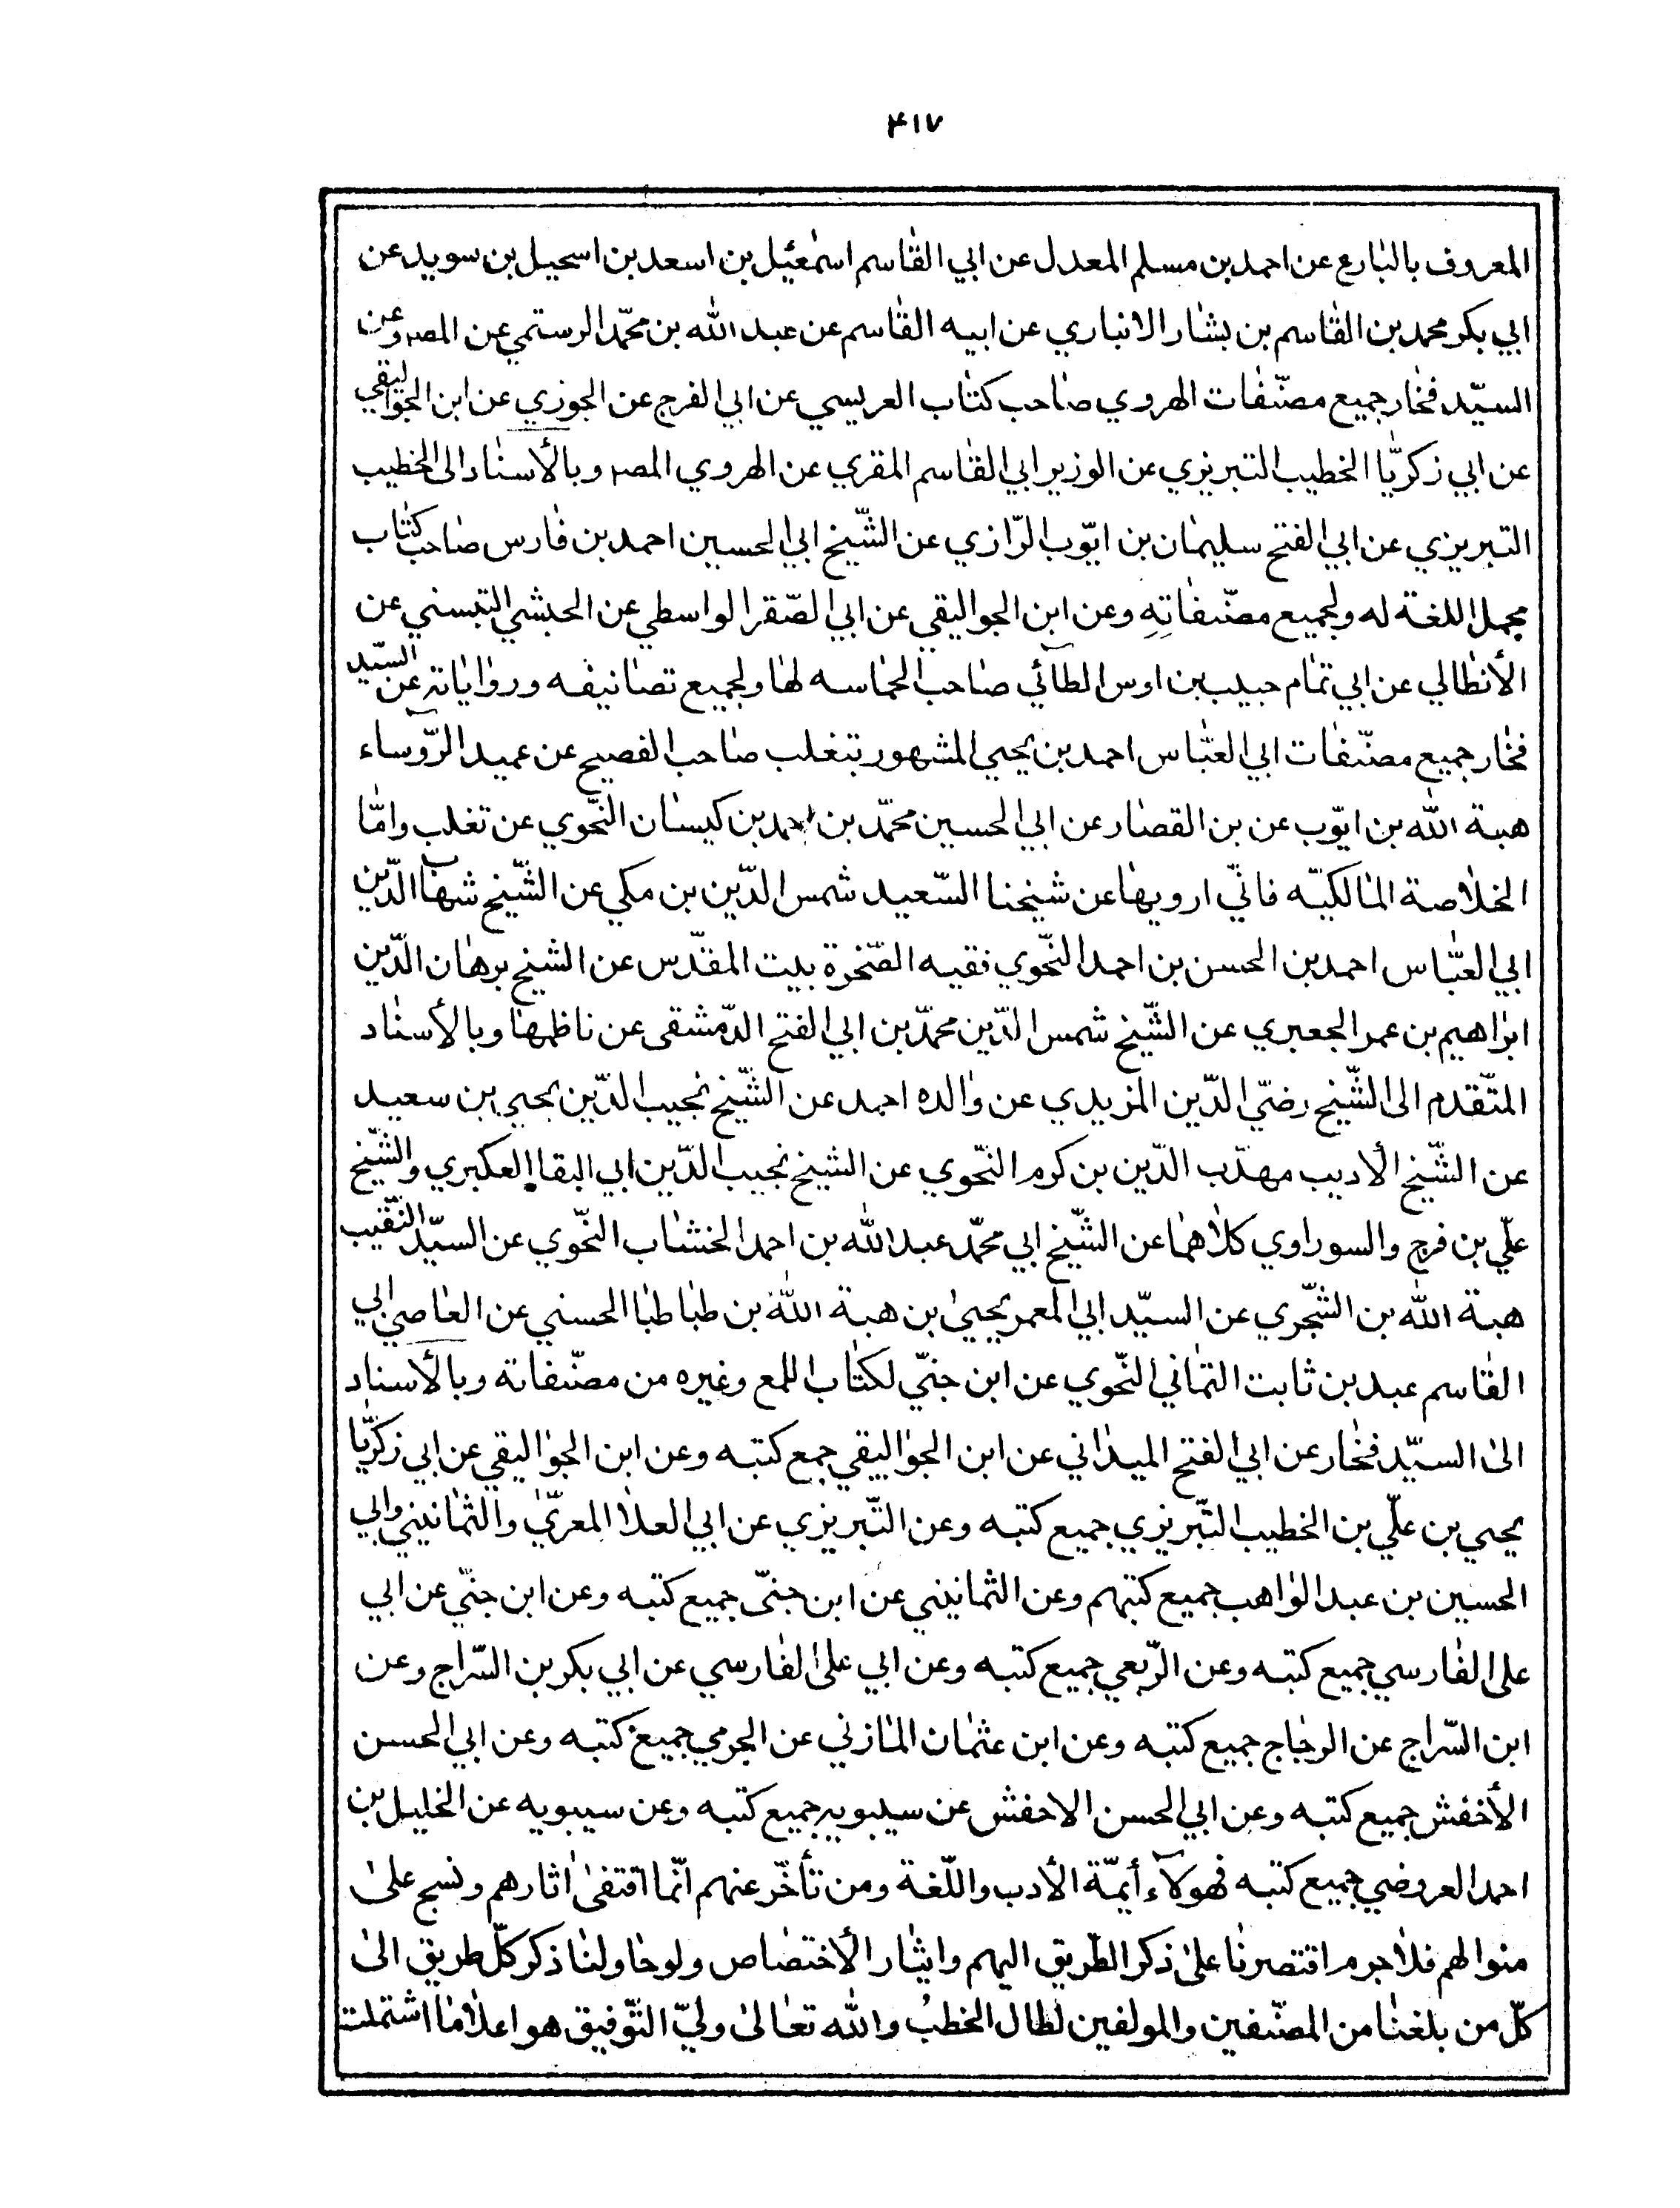 ۴۱۷
المعروف بالبارع عن احمد بن مسلم المعدل عن ابي القاسم اسمعيل بن اسعد بن اسحيل بن سويد عن
ابي بكر محمد بن القاسم بن بشار الانباري عن ابيه القاسم عن عبد الله بن محمّد الرستمي عن المصر وعن
السيّد فخار جميع مصنّفات الهروي صاحب كتاب العريسي عن ابي الفرج عن الجوزي عن ابن الجواليقي
عن ابي زكريّا الخطيب التبريزي عن الوزير ابي القاسم المقري عن الهروي المصر وبالأسناد الى الخطيب
التبريزي عن ابي الفتح سليمان بن ايّوب الرّازي عن الشّيخ ابي الحسين احمد بن فارس صاحب كتاب
مجمل اللغة له ولجميع مصنّفاتِهِ وعن ابن الجواليقي عن ابي الصّقر الواسطي عن الحبشي التبسني عن
الأنطالي عن ابي تمام حبيب بن اوس الطآئي صاحب الحماسه لها ولجميع تصانيفه ورواياته عن السّيد
فخار جميع مصنّفات ابي العبّاس احمد بن يحيي المشهور بتغلب صاحب الفصيح عن عميد الرّوساء
هبة الله بن ايّوب عن بن القصار عن ابي الحسين محمّد بن احمد بن كيسان النّحوي عن تغلب وامّا
الخلاصة المالكيّه فانّي ارويها عن شيخنا السّعيد شمس الدّين بن مكي عن الشّيخ شهاب الدّين
ابي العبّاس احمد بن الحسن بن احمد النّحوي فقيه الصّخرة ببيت المقدّس عن الشيخ برهان الدّين
ابراهيم بن عمر الجعبري عن الشّيخ شمس الدّين محمّد بن ابي الفتح الدّمشقى عن ناظمها وبالأسناد
المتّقدم الى الشّيخ رضيّ الدّين المزيدي عن والده احمد عن الشّيخ نجيب الدّين يحيى بن سعيد
عن الشّيخ الأديب مهذّب الدّين بن كرم النّحوي عن الشيخ نجيب الدّين ابي البقاا العكبري والشّيخ
علّي بن فرج والسوراوي كلاهما عن الشّيخ ابي محمّد عبد الله بن احمد الخشاب النّحوي عن السيّد النّقيب
هبة الله بن الشّجري عن السيّد ابي المعمر يحيىٰ بن هبة الله بن طباطبا الحسني عن العاصي ابي
القاسم عبد بن ثابت الثماني النّحوي عن ابن جنّي لكتاب اللمع وغيره من مصنّفاته وبالأسناد
الىٰ السيّد فخار عن ابي الفتح الميداني عن ابن الجواليقي جمع كتبه وعن ابن الجواليقي عن ابي زكريّا
يحيى بن علّي بن الخطيب التّبريزي جميع كتبه وعن التّبريزي عن ابي العلا المعريّ والثمانيني وابي
الحسين بن عبد الواهب جميع كتبهم وعن الثمانيني عن ابن جنىّ جميع كتبه وعن ابن جنّي عن ابي
على الفارسي جميع كتبه وعن الرّبعي جميع كتبه وعن ابي على الفارسي عن ابي بكر بن السّراج وعن
ابن السّراج عن الرجاج جميع كتبه وعن ابن عثمان المازني عن الجرمي جميع كتبه وعن ابي الحسن
الأخفش جميع كتبه وعن ابي الحسن الاحفش عن سيبويه جميع كتبه وعن سيبويه عن الخليل بن
احمد العروضي جميع كتبه فهولآء أيمّة الأدب واللّغة ومن تأخّر عنهم انّما اقتفىٰ اثارهم ونسج علىٰ
منوالهم فلا جرم اقتصرنا علىٰ ذكر الطّريق اليهم وايثار الأختصاص ولو حاولنا ذكر كلّ طريق الىٰ
كلّ من بلغنا من المصنّفين والمولفين لطال الخطبُ والله تعالىٰ وليّ التّوفيق هو اعلا ما اشتملت